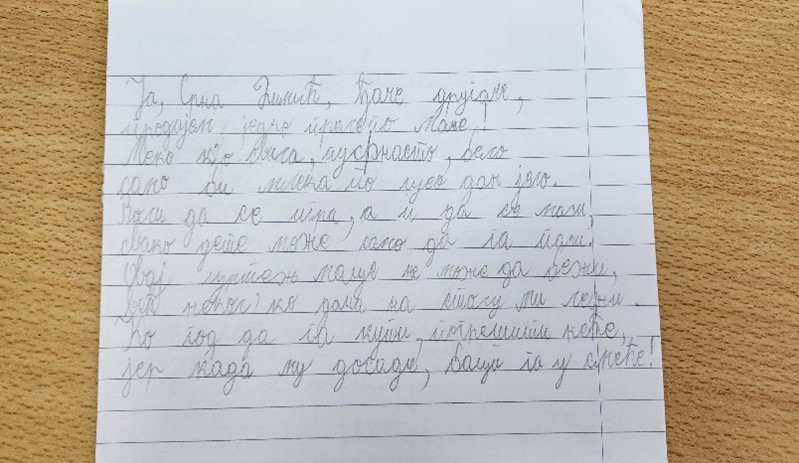 Ја, Срна Зимић, ђаче другаче,
продајем једно прасето мање
Меко к'о свила, пуфнасто, бело
само би млека по цео дан јело.
Воли да се игра, а и да се мази,
свако дете може лако да га пази.
Овај цртеж мали не може да бежи,
већ некол'ко дана на столу ми лежи.
Ко год да га купи, погрешити неће,
јер када му досади, баци га у смеће!